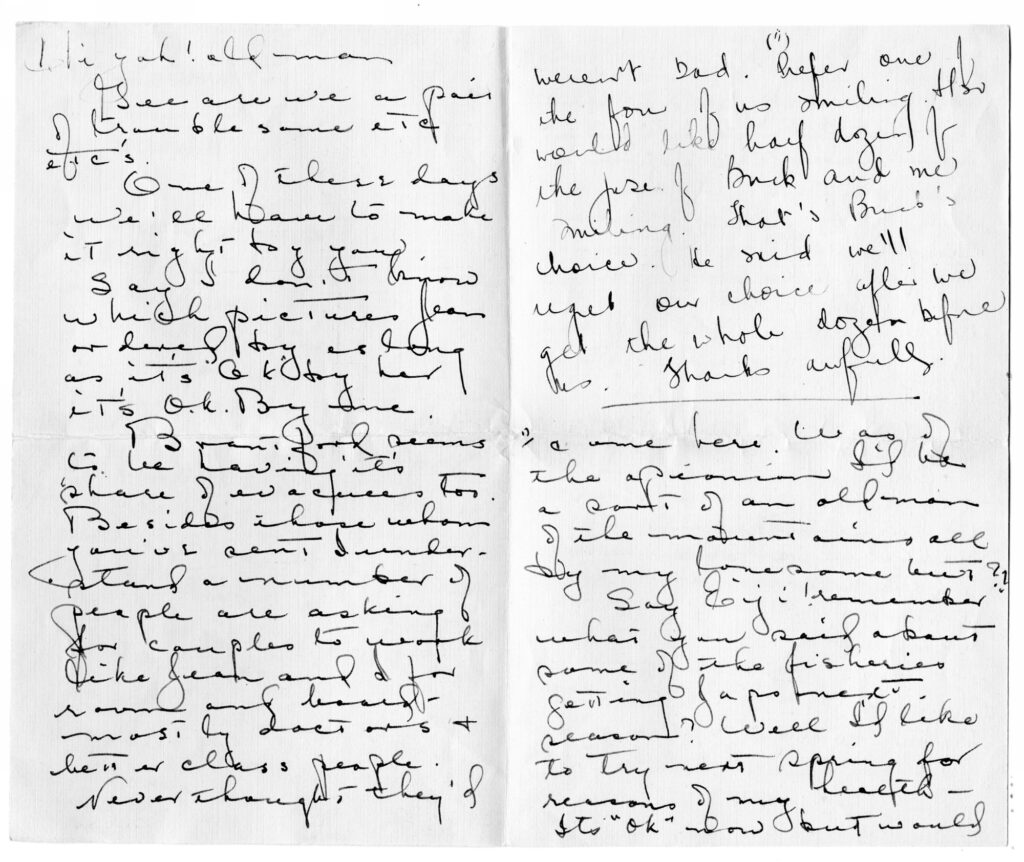 Hi yah! old man
Gee are we a pair
of trouble some etc
etc's.
One of these days
we'll have to make
it right by you
Say I don't know
which pictures Jean
ordered but as long
as it's Ok by her
it's O.K. By me.
Brantford seems
to be having it's
share of evacuees too.
Besides those whom
you've sent I under-
stand a number of
people are asking
for couples to work
like Jean and I for
room and board -
mostly doctors +
better class people.
Never thought they'd
(11)
weren't bad. Prefer one of
the four of us smiling. Also
would like half dozen of
the pose of Buck and me
smiling. That's Buck's
choice. He said we'll
regret our choice after we
get the whole dozen before
us. Thanks awfully.
a come here. Was of
the opionion I'd be
a sort of an old man
of the mountains all
by my lonesome but??
Say Eiji! remember
what you said about
some of the fisheries
getting Japs next
season? Well I'd like
to try next spring for
reasons of my health -
Its "ok" now but would